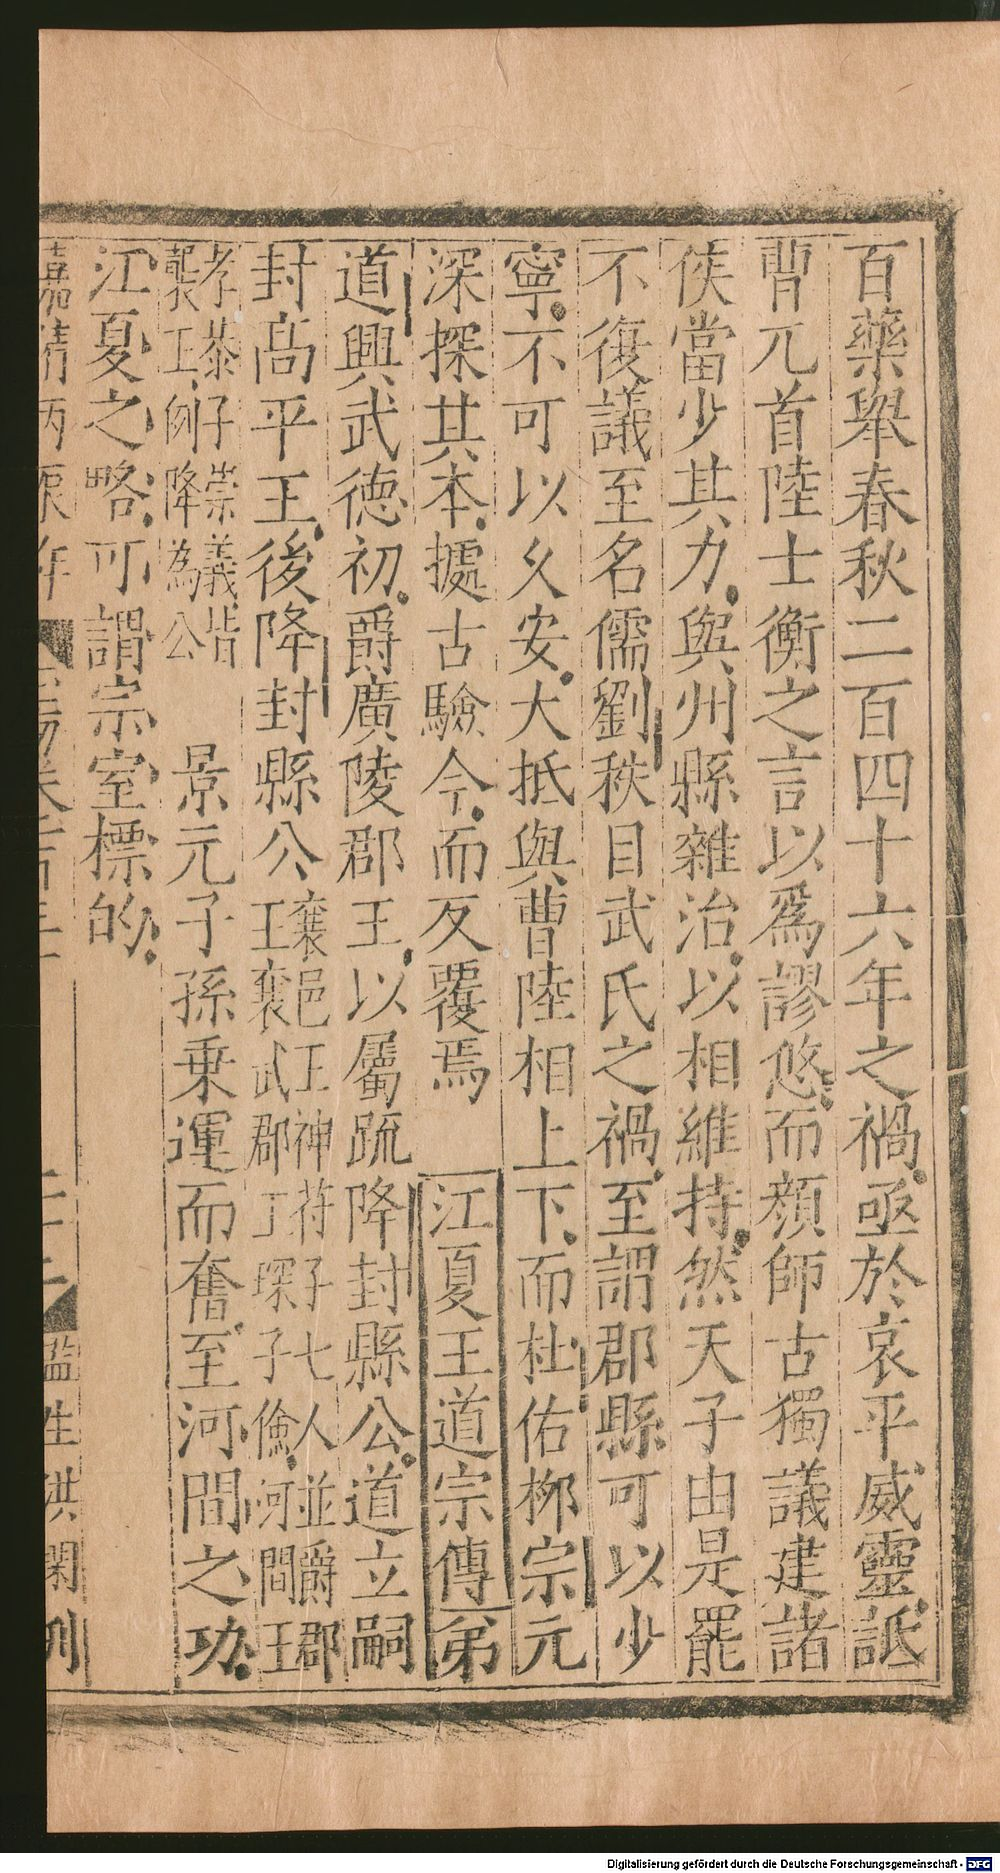 百藥舉春秋二百四十六年之禍亟於哀平威靈詆
曹元首陸士衡之言以爲謬悠而顏師古獨議建諸
侯當少其力與州縣雜治以相維持然天子由是罷
不復議至名儒劉秩目武氏之禍至謂郡縣可以少
寧不可以久安大抵與曹陸相上下而杜佑柳宗元
深探其本據古驗今而反覆焉 江夏王道宗傳弟
道興武德初爵廣陵郡王以屬疏降封縣公道立嗣
封高平王後降封縣公
襄邑王神符子七人並爵郡
王襄武郡王琛子儉河間王
孝恭子崇義皆
襲王例降為公
景元子孫乗運而奮至河間之功
江夏之略可謂宗室標的
嘉靖丙辰年 二十二 監生洪 刊
Digitalisierung gefördert durch die Deutsche Forschungsgemeinschaft - DFG